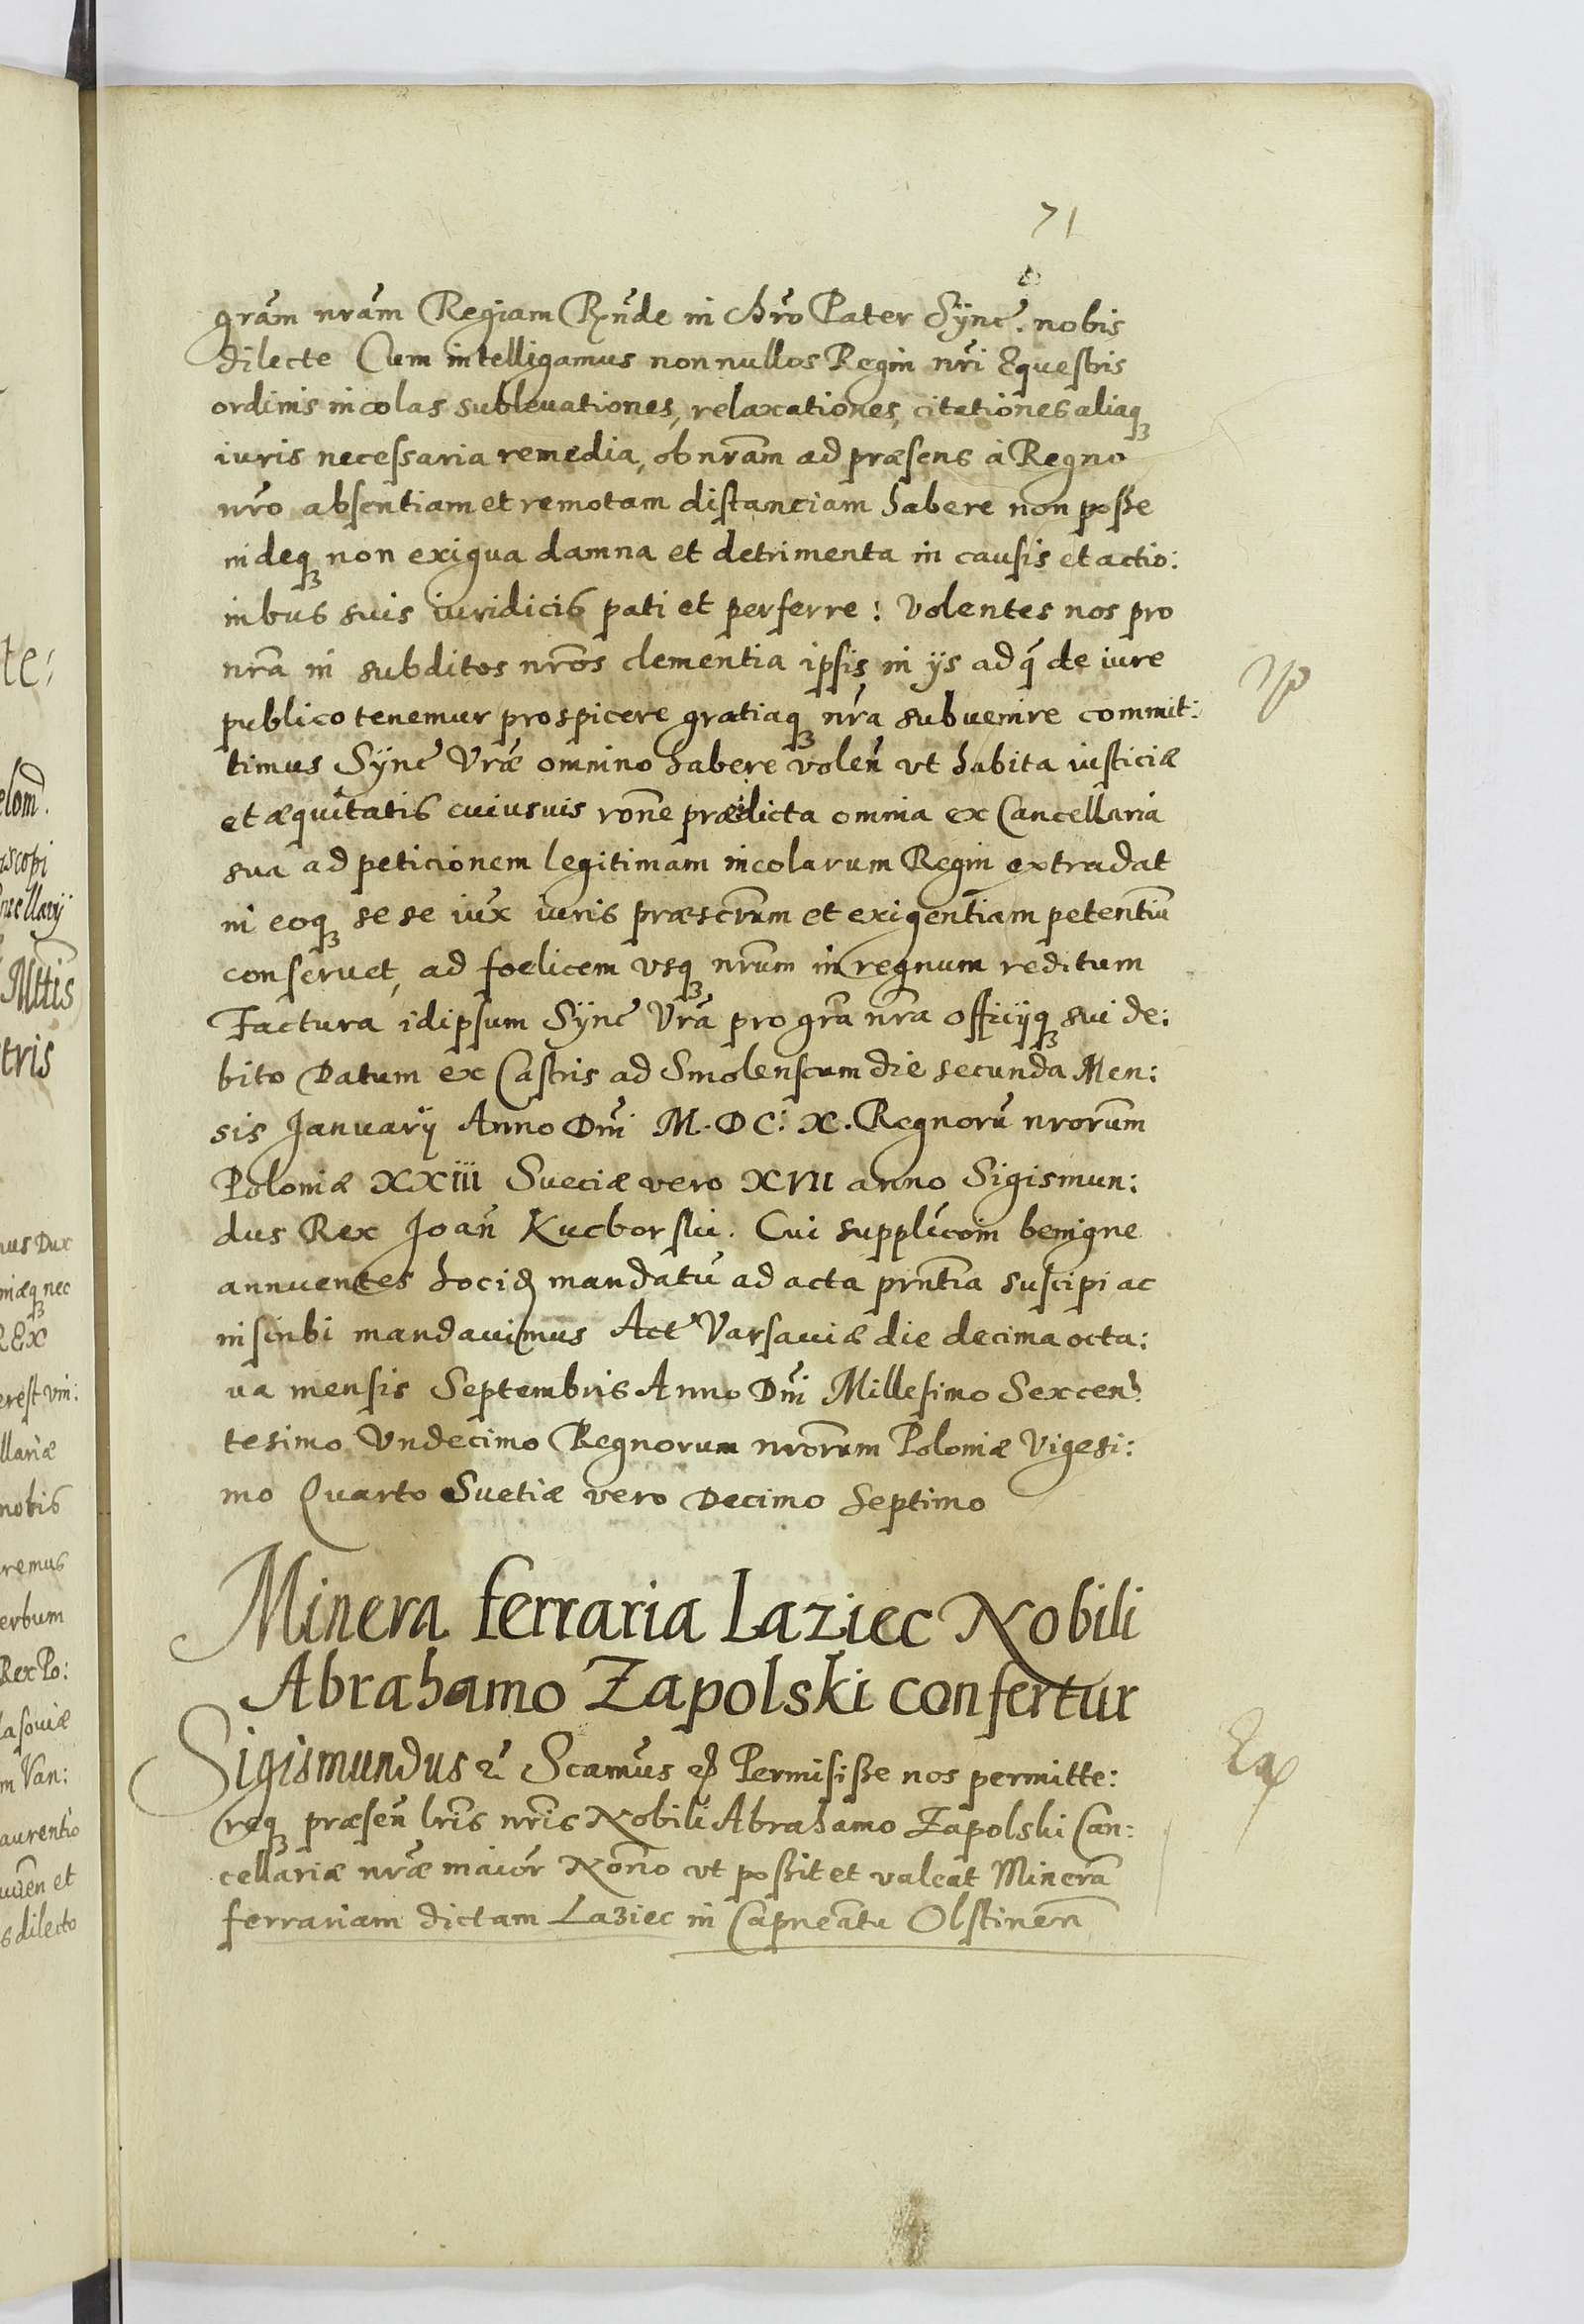 71
grãm nrãm Regiam Rnde in chro Pater Sync. nobis
dilecte Cum intelligamus nonnullos Regni nri Equestris
ordinis incolas subleuationes, relaxationes, citationes aliaqꝫ
iuris necessaria remedia, ob nrãm ad præsens à Regno
nro absentiam et remotam distanciam habere non posse
indeqꝫ non exigua damna et detrimenta in causis et actio:
nibus suis iuridicis pati et perferre: Volentes nos pro
nra in subditos nros clementia ipsis in ijs ad q̃ de iure
publico tenemur prospicere gratiaqꝫ nra subuenire commit:
timus Sync Vræ omnino habere voleñ vt habita iusticiæ
et æquitatis cuiusuis rone prædicta omnia ex Cancellaria
sua ad peticionem legitimam incolarum Regni extradat
in eoqꝫ se se iux iuris præscrum et exigentiam petentiũ
conseruet, ad foelicem vsqꝫ nrum in regnum reditum
Factura idipsum Sync Vra pro gra nra officijqꝫ sui de:
bito Datum ex Castris ad Smolenscum die secunda Men:
sis Januarij Anno Dni M.DC:X. Regnorũ nrorum
Poloniæ XXIII Sueciæ vero XVII anno Sigismun:
dus Rex Joañ Kucborski. Cui supplicõni benigne
annuentes hoc id mandatũ ad acta prntia suscipi ac
inscribi mandauimus Act Varsauiæ die decima octa:
ua mensis Septembris Anno Dni Millesimo Sexcen:
tesimo Vndecimo Regnorum nrorum Poloniæ Vigesi:
mo Quarto Suetiæ vero Decimo Septimo
Minera ferraria Laziec Nobili
Abrahamo Zapolski confertur
Sigismundus Scamus Permisisse nos permitte:
reqꝫ præseñ lris nris Nobili Abrahamo Zapolski Can:
cellariæ nræ maior Nono vt possit et valeat Minerã
ferrariam dictam Laziec in Capneatu Olstineñ